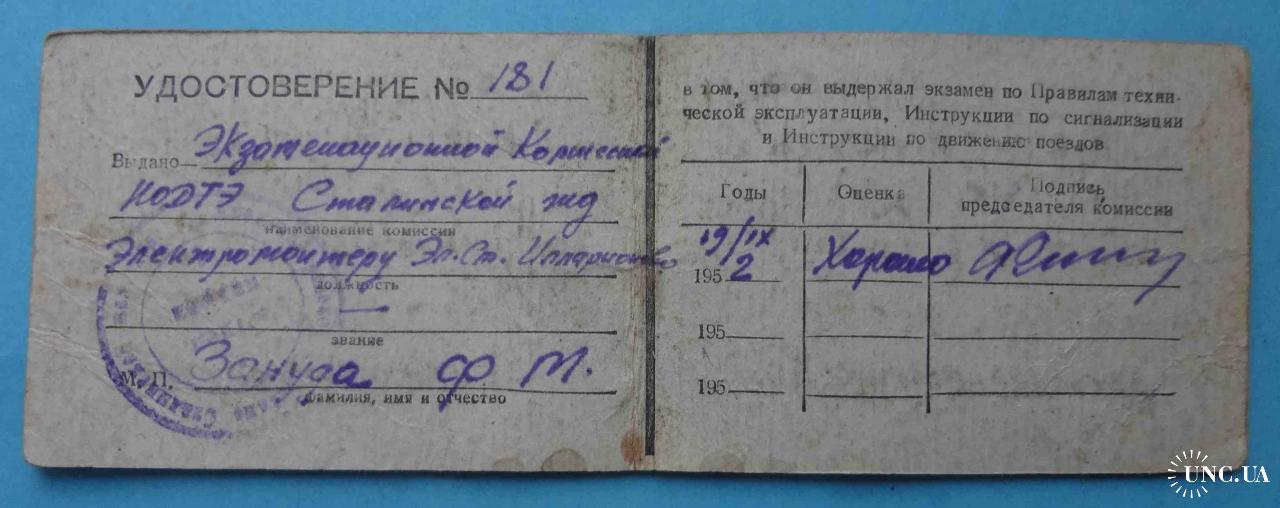 УДОСТОВЕРЕНИЕ № 181
Выдано Экзаменационной Комиссией
НОДТЭ Сталинской жд
наименование комиссии
Электромонтеру Эл. Ст.
должность
—
звание
М. П. Зануда Ф М.
фамилия, имя и отчество
в том, что он выдержал экзамен по Правилам техни-
ческой эксплуатации, Инструкции по сигнализации
и Инструкции по движению поездов
Годы Оценка Подпись
председателя комиссии
19/IX
1952 Хорошо
195
195
UNC.UA